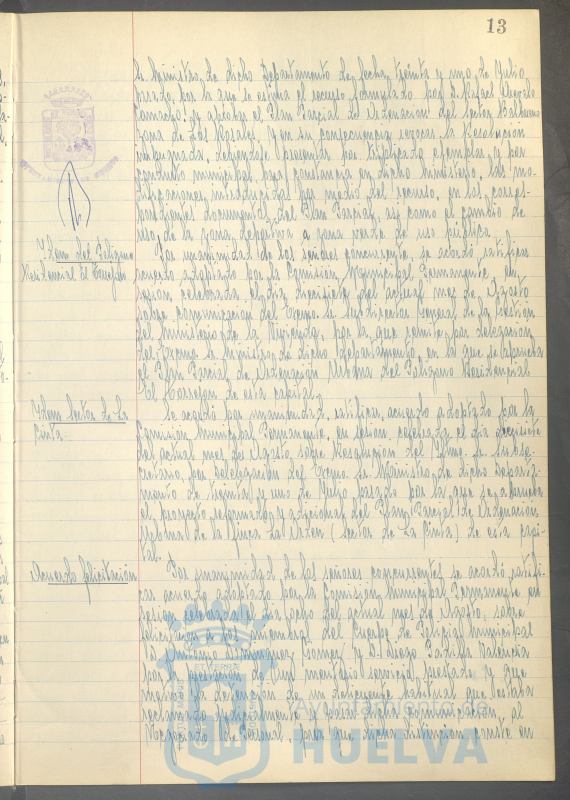 13
Sr. Ministro de dicho Departamento de fecha treinta y uno de Julio
pasado, por la que se estima el recurso formulado por D. Rafael
Camacho y aprobar el Plan Parcial de Ordenación del Sector
zona de Los Rosales y en su consecuencia revocar la Resolución
impugnada, debiéndose presentar por triplicado ejemplar y por
conducto municipal para constancia en dicho Ministerio, las mo-
dificaciones introducidas por medio del recurso, en los corres-
pondientes documentos del Plan Parcial, así como el cambio de
uso de la zona deportiva a zona verde de uso público.
Idem del Polígono
Residencial El Torrejón
Por unanimidad de los señores concurrentes, se acordó ratificar
acuerdo adoptado por la Comisión Municipal Permanente, en
sesión celebrada el día diecisiete del actual mes de Agosto
sobre comunicación del Excmo. Sr. Subdirector General de la Gestión
del Ministerio de la Vivienda, por la que remite por delegación
del Excmo. Sr. Ministro de dicho Departamento, en la que se aprueba
el Plan Parcial de Ordenación Urbana del Polígono Residencial
El Torrejón de esta capital.
Idem Sector de La
Cinta.
Se acordó por unanimidad, ratificar acuerdo adoptado por la
Comisión Municipal Permanente, en sesión celebrada el día diecisiete
del actual mes de Agosto sobre Resolución del Iltmo. Sr. Subse-
cretario, por delegación del Excmo. Sr. Ministro de dicho Departa-
mento de treinta y uno de Julio pasado por la que se aprueba
el proyecto reformado y adicional del Plan Parcial de Ordenación
Urbana de la Finca La Orden (Sector de La Cinta) de esta capi-
tal.
Acuerdo felicitación
Por unanimidad de los señores concurrentes se acordó ratifi-
car acuerdo adoptado por la Comisión Municipal Permanente en
sesión celebrada el día ocho del actual mes de Agosto, sobre
felicitación a los miembros del Cuerpo de Policía Municipal
D. Antonio Dominguez Gomez y D. Diego Padilla Valencia
por la de un meritorio servicio prestado y que
motivó la detención de un delincuente habitual que estaba
reclamado y pasar dicha comunicación al
Negociado de Personal, para que dicha distinción conste en
Ayuntamiento de
HUELVA